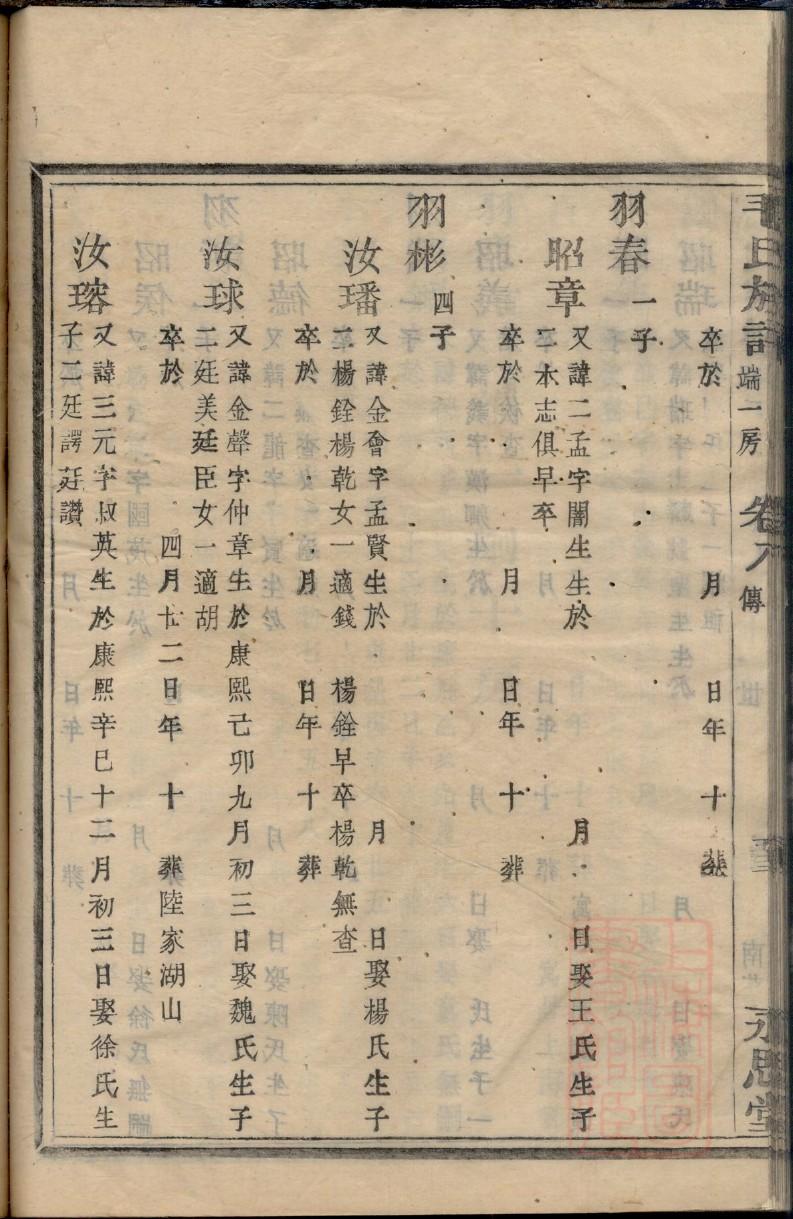 毛氏族譜 端一房 卷八 傳 永思堂
卒於 月 日年 十 葬
羽春 一子
昭章 又諱二孟字闇生生於 月 日娶王氏生子
二木志俱早卒
卒於 月 日年 十 葬
羽彬 四子
汝璠 又諱金會字孟賢生於 月 日娶楊氏生子
二楊銓楊乾女一適錢 楊銓早卒楊乾無查
卒於 月 日年 十 葬
汝球 又諱金聲字仲章生於康熙己卯九月初三日娶魏氏生子
二廷美廷臣女一適胡
卒於 四月廿二日年 十 葬陸家湖山
汝瑢 又諱三元字叔英生於康熙辛巳十二月初三日娶徐氏生
子二廷諤廷讚